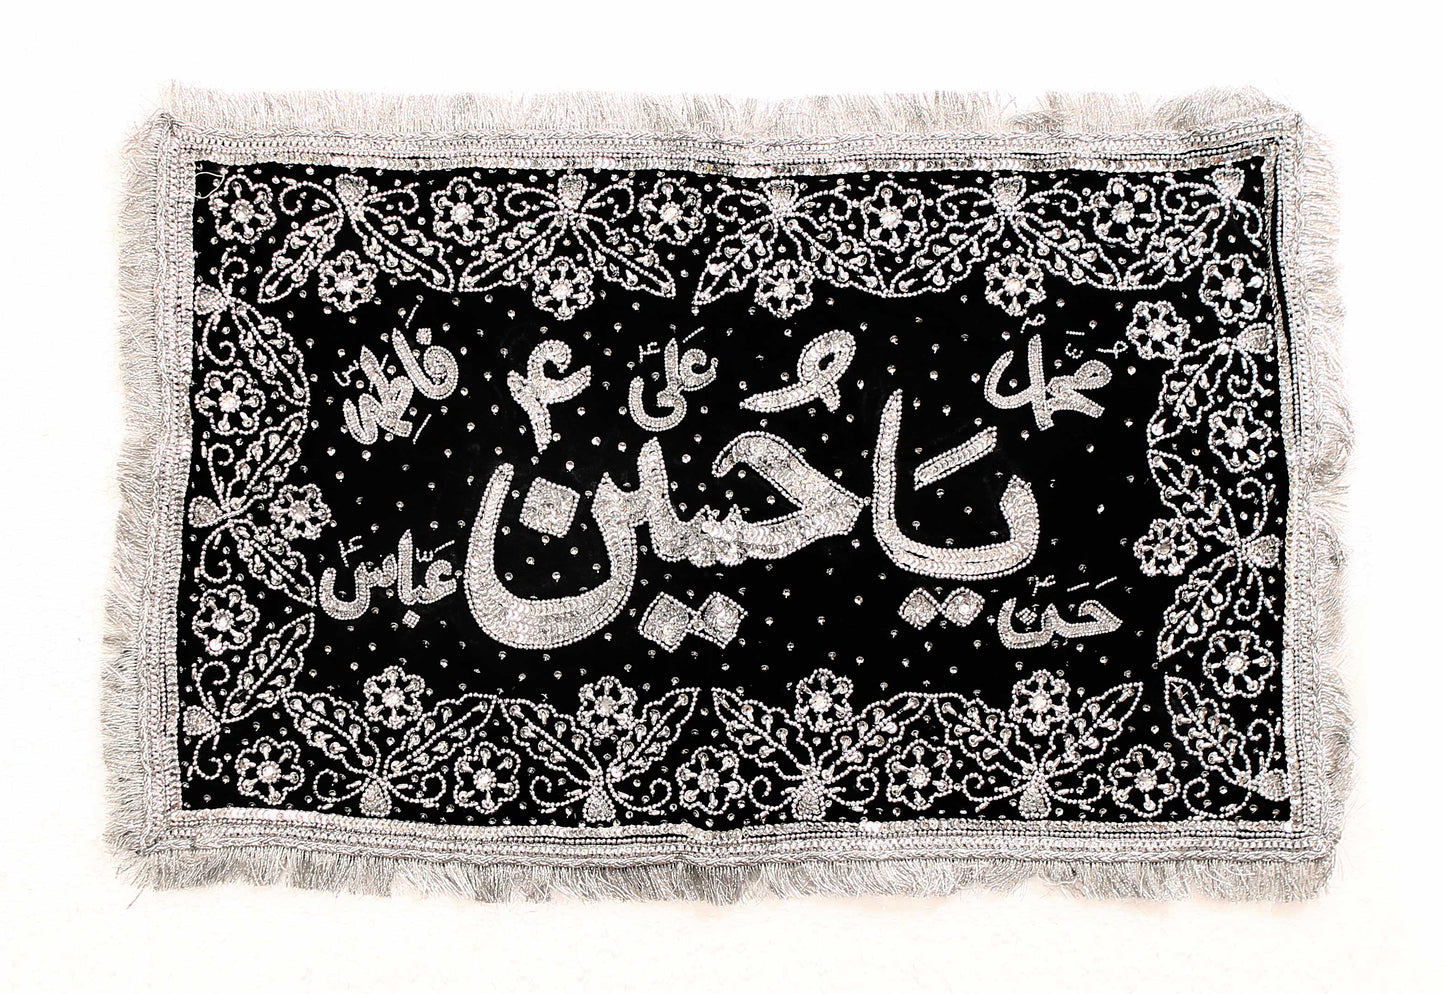 محمد
علی
فاطمہ
یا حُسین
حسن
عباس